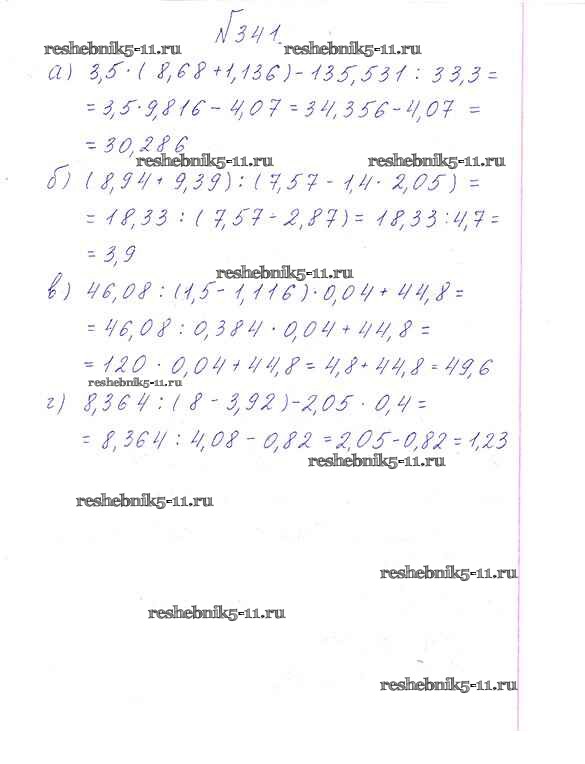 №341.
reshebnik5-11.ru reshebnik5-11.ru
а) 3,5·(8,68+1,136)-135,531:33,3=
=3,5·9,816-4,07=34,356-4,07=
=30,286
reshebnik5-11.ru reshebnik5-11.ru
б) (8,94+9,39):(7,57-1,4·2,05)=
=18,33:(7,57-2,87)=18,33:4,7=
=3,9
reshebnik5-11.ru
в) 46,08:(1,5-1,116)·0,04+44,8=
=46,08:0,384·0,04+44,8=
=120·0,04+44,8=4,8+44,8=49,6
reshebnik5-11.ru
г) 8,364:(8-3,92)-2,05·0,4=
=8,364:4,08-0,82=2,05-0,82=1,23
reshebnik5-11.ru
reshebnik5-11.ru
reshebnik5-11.ru
reshebnik5-11.ru
reshebnik5-11.ru